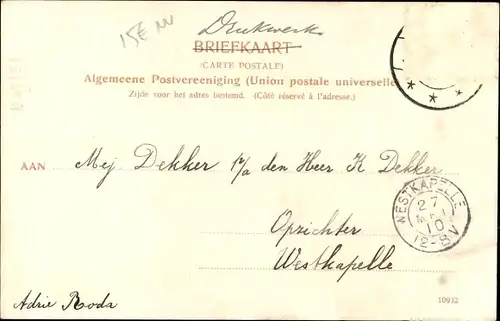 15E
Drukwerk
BRIEFKAART
(CARTE POSTALE)
Algemeene Postvereeniging (Union postale universelle)
Zijde voor het adres bestemd. (Côté réservé à l'adresse.)
AAN Mej Dekker p/a den Heer K Dekker
Opzichter
Westkapelle
WESTKAPELLE
27
MEI
10
12-8V
Adrie Roda
10932